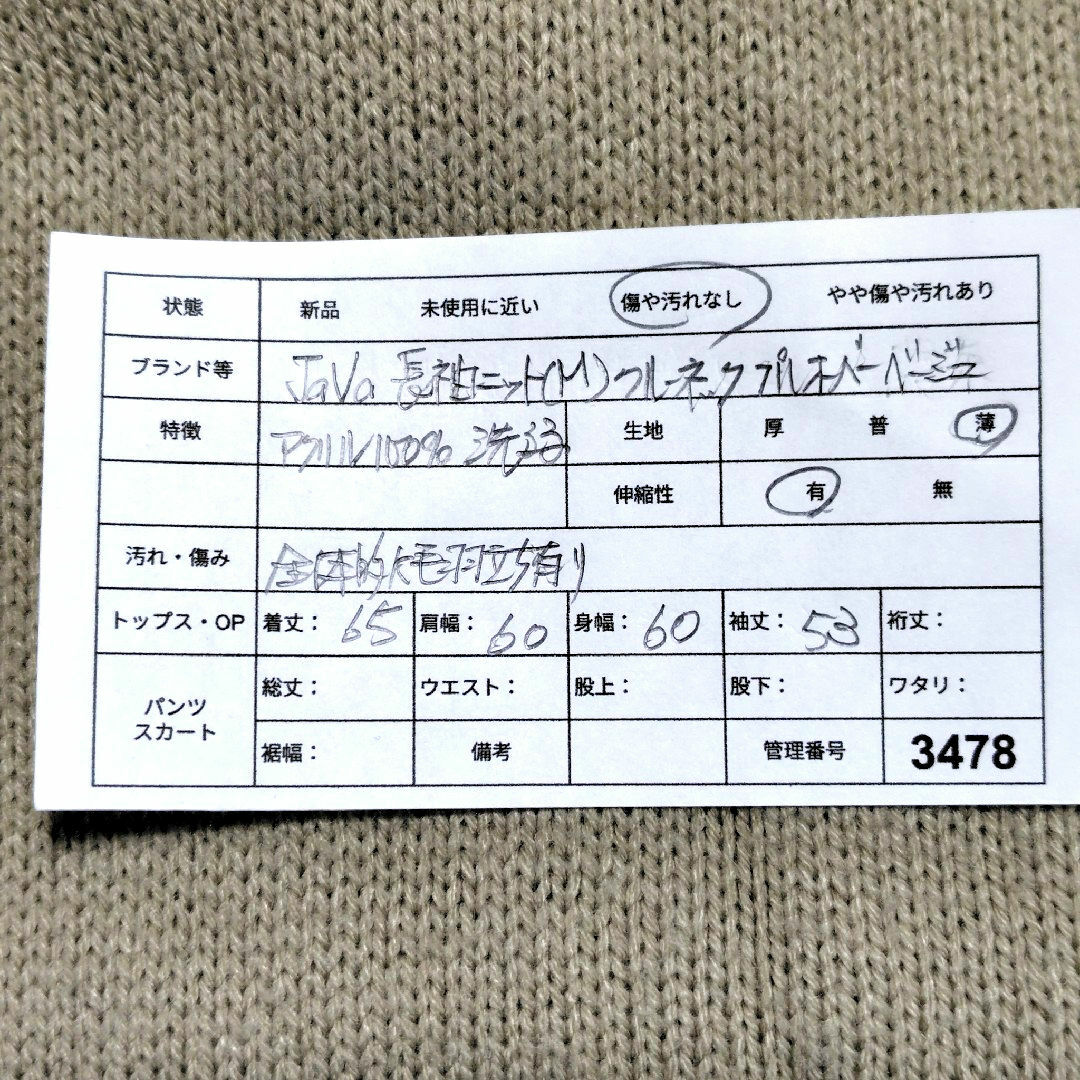 状態 新品 未使用に近い 傷や汚れなし やや傷や汚れあり
ブランド等 JaVa 長袖ニット(M)クルーネックプルオーバーベージュ
特徴 アクリル100% 生地 厚 普 薄
伸縮性 有 無
汚れ・傷み 全体的に毛羽立ち有り
トップス・OP 着丈: 65 肩幅: 60 身幅: 60 袖丈: 53 裄丈:
パンツ 総丈: ウエスト: 股上: 股下: ワタリ:
スカート
裾幅: 備考 管理番号 3478